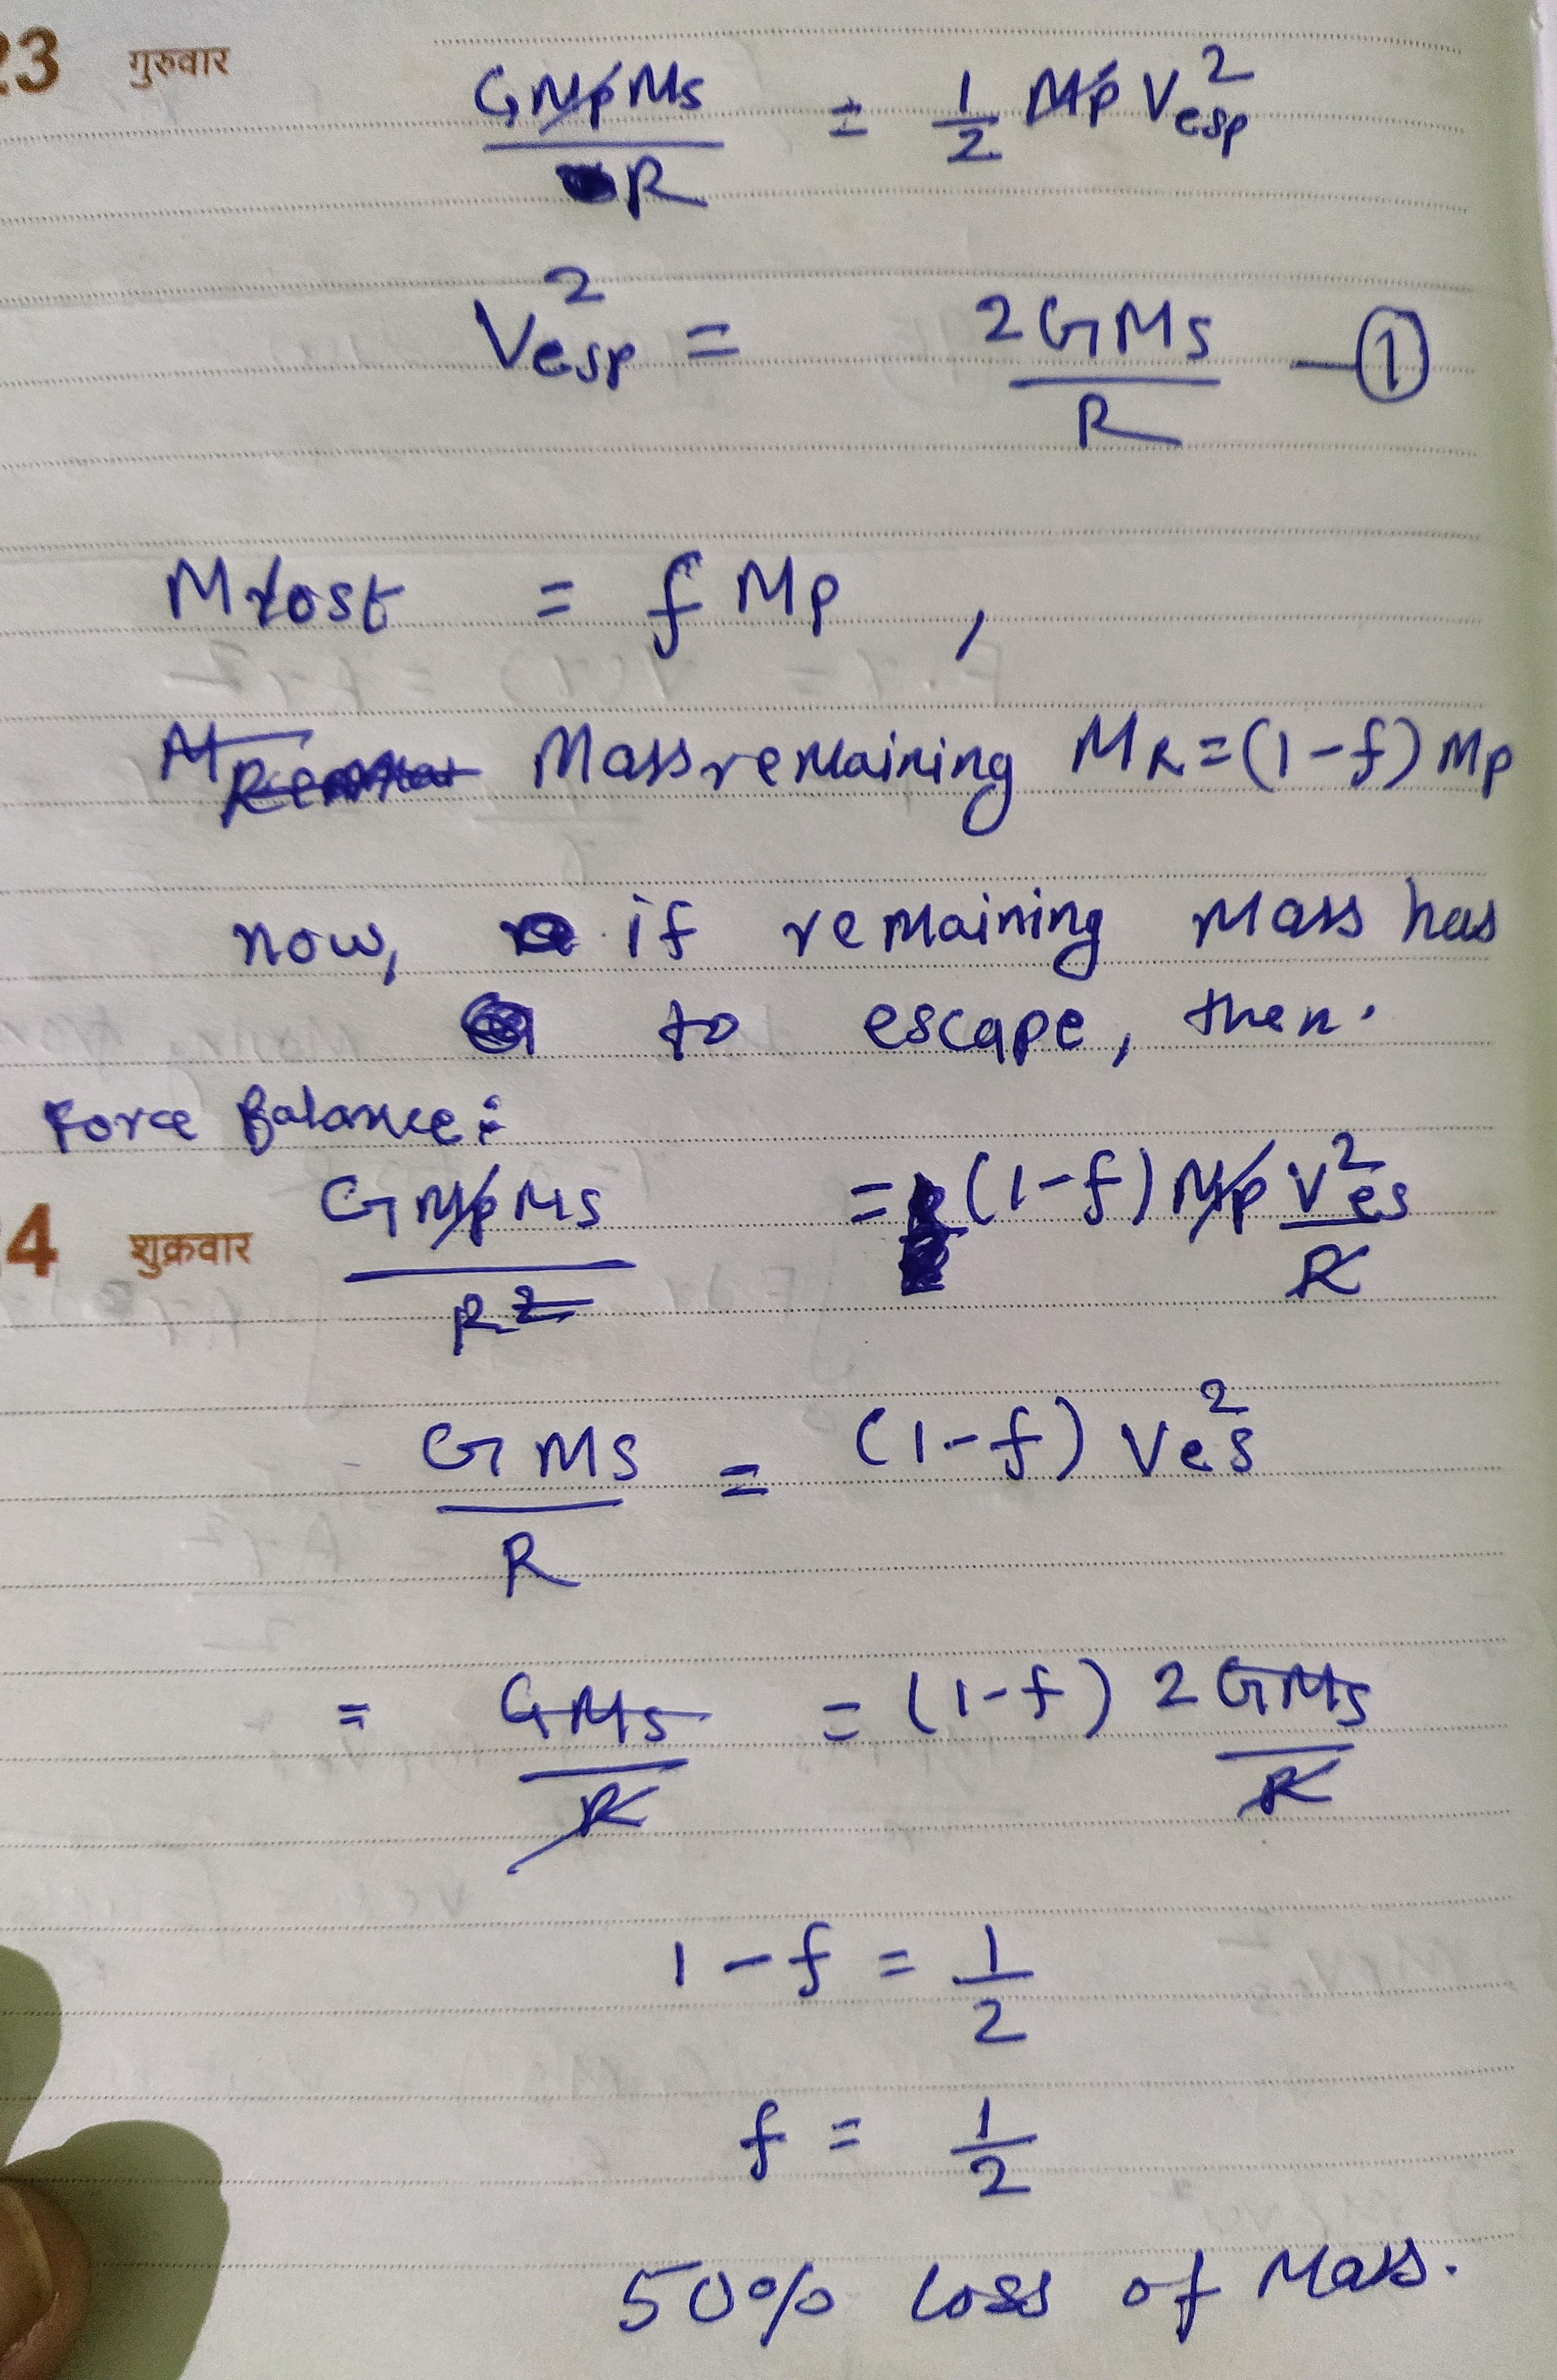 23 गुरुवार
GMpMs / R = 1/2 Mp Vesp²
Vesp² = 2GMs / R — ①
Mlost = f Mp ,
Mass remaining MR = (1-f) Mp
now, if remaining Mass has
to escape, then.
Force Balance:
4 शुक्रवार
GMpMs / R² = (1-f) Mp Ves² / R
GMs / R = (1-f) Ves²
= GMs / R = (1-f) 2GMs / R
1-f = 1/2
f = 1/2
50% loss of Mass.